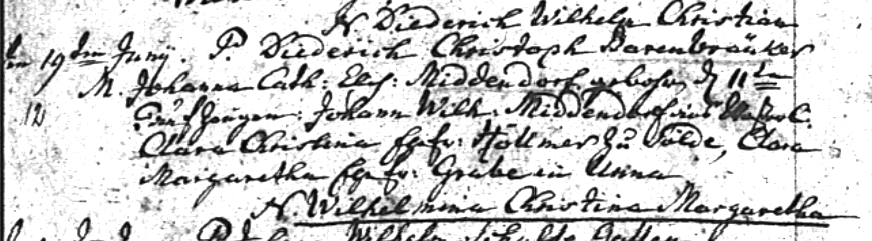 N. Diederich Wilhelm Christian
den 19ten Juny. P. Diederich Christoph Barenbräuker
M. Johanna Cath: Elis: Middendorf gebohr. d 11ten
12 Taufzeugen: Johann Wilh: Middendorf
Clara Christina Ehefr: Höllmer zu Sölde, Clara
Margaretha Ehefr: Grabe in Unna
N. Wilhelmina Christina Margaretha
Wilhelm Schulde